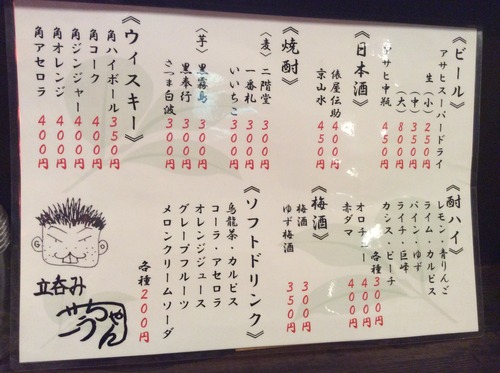 《ビール》
アサヒスーパードライ
生(小)250円
(中)350円
(大)800円
アサヒ中瓶 450円
《日本酒》
俵屋伝助 400円
京山水 450円
《焼酎》
〈麦〉二階堂 300円
一番札 300円
いいちこ 300円
〈芋〉黒霧島 300円
黒奉行 300円
さつま白波 300円
《ウィスキー》
角ハイボール 350円
角コーク 400円
角ジンジャー 400円
角オレンジ 400円
角アセロラ 400円
《酎ハイ》
レモン・青りんご
ライム・カルピス
パイン・ゆず
ライチ・巨峰
カシス・ピーチ
各種 300円
オロチ 400円
赤ダマ 400円
《梅酒》
梅酒 300円
ゆず梅酒 350円
《ソフトドリンク》
烏龍茶・カルピス
コーラ・アセロラ
オレンジジュース
グレープフルーツ
メロンクリームソーダ
各種 200円
G O
立呑み